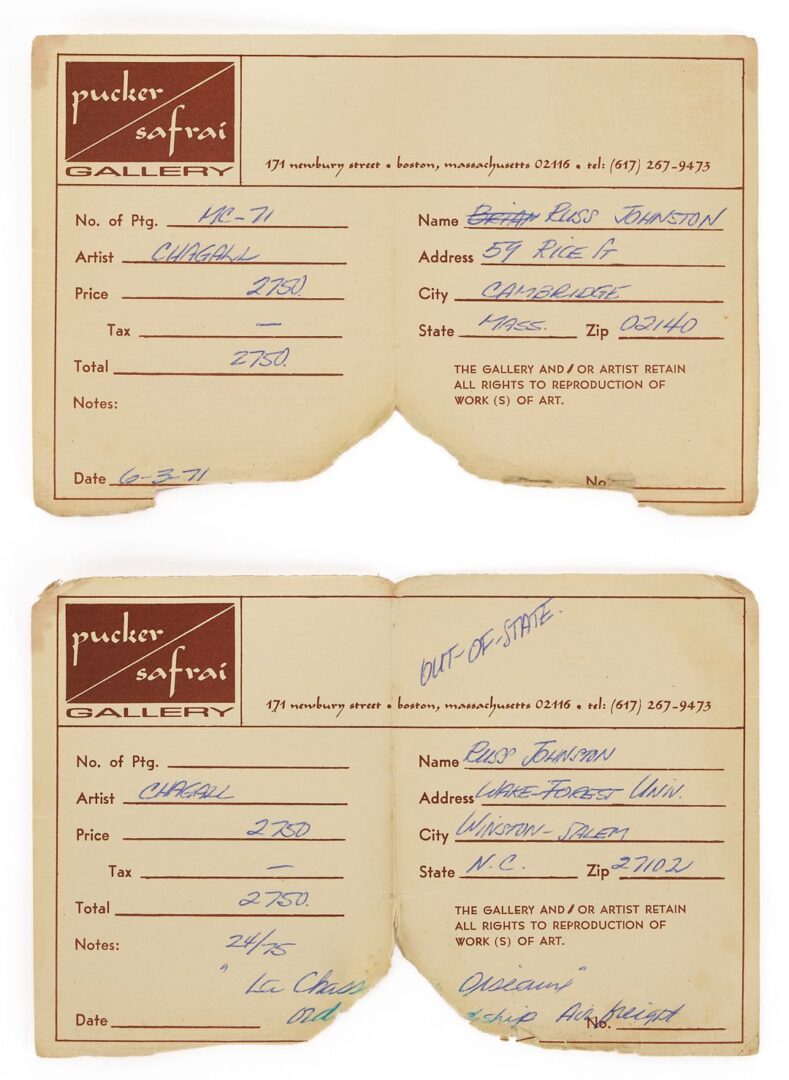 pucker
safrai
GALLERY
171 newbury street • boston, massachusetts 02116 • tel: (617) 267-9473
No. of Ptg. MC-71
Artist CHAGALL
Price 2750.
Tax —
Total 2750.
Notes:
Date 6-3-71
Name BRIAN RUSS JOHNSTON
Address 59 RICE ST
City CAMBRIDGE
State MASS. Zip 02140
THE GALLERY AND/OR ARTIST RETAIN
ALL RIGHTS TO REPRODUCTION OF
WORK (S) OF ART.
No.
pucker
safrai
GALLERY
OUT-OF-STATE.
171 newbury street • boston, massachusetts 02116 • tel: (617) 267-9473
No. of Ptg.
Artist CHAGALL
Price 2750
Tax —
Total 2750.
Notes: 24/75
"La Chass Oiseaux"
ship Air freight
Date
Name RUSS JOHNSTON
Address WAKE-FOREST UNIV.
City WINSTON-SALEM
State N.C. Zip 27102
THE GALLERY AND/OR ARTIST RETAIN
ALL RIGHTS TO REPRODUCTION OF
WORK (S) OF ART.
No.